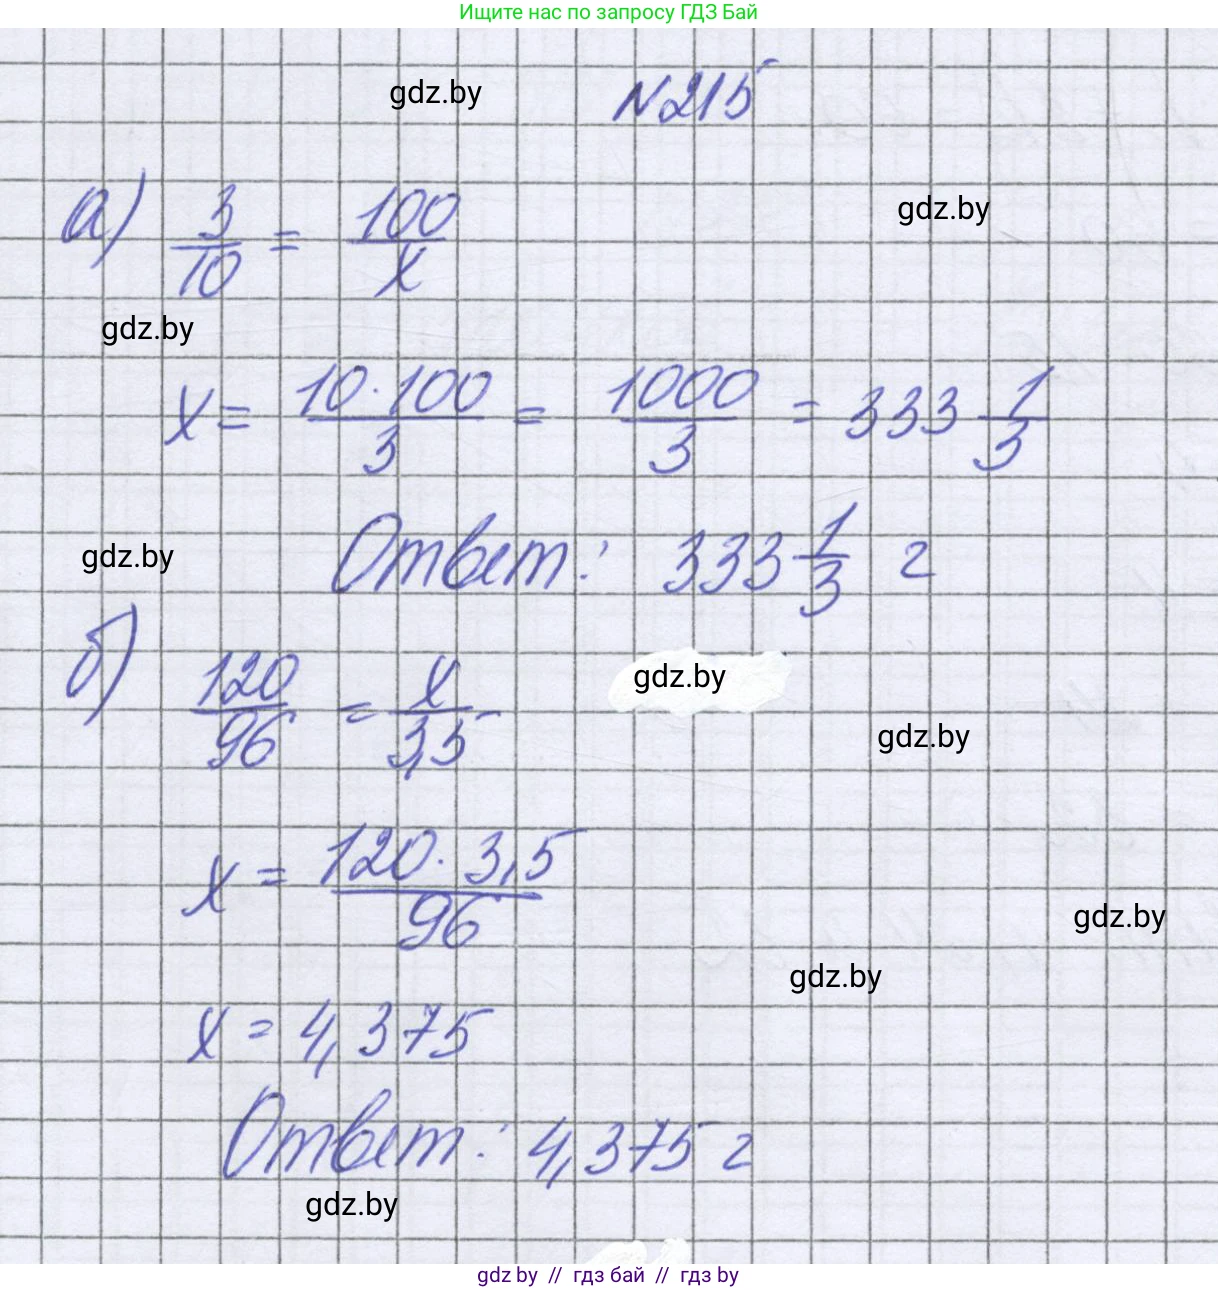 Ищите нас по запросу ГДЗ Бай
gdz.by
N215
а) 3/10 = 100/x
gdz.by
gdz.by
x = 10·100/3 = 1000/3 = 333 1/3
gdz.by
Ответ: 333 1/3 г
б) 120/96 = x/3,5
gdz.by
gdz.by
x = 120·3,5/96
gdz.by
gdz.by
x = 4,375
Ответ: 4,375 г
gdz.by
gdz by // гдз бай // гдз by